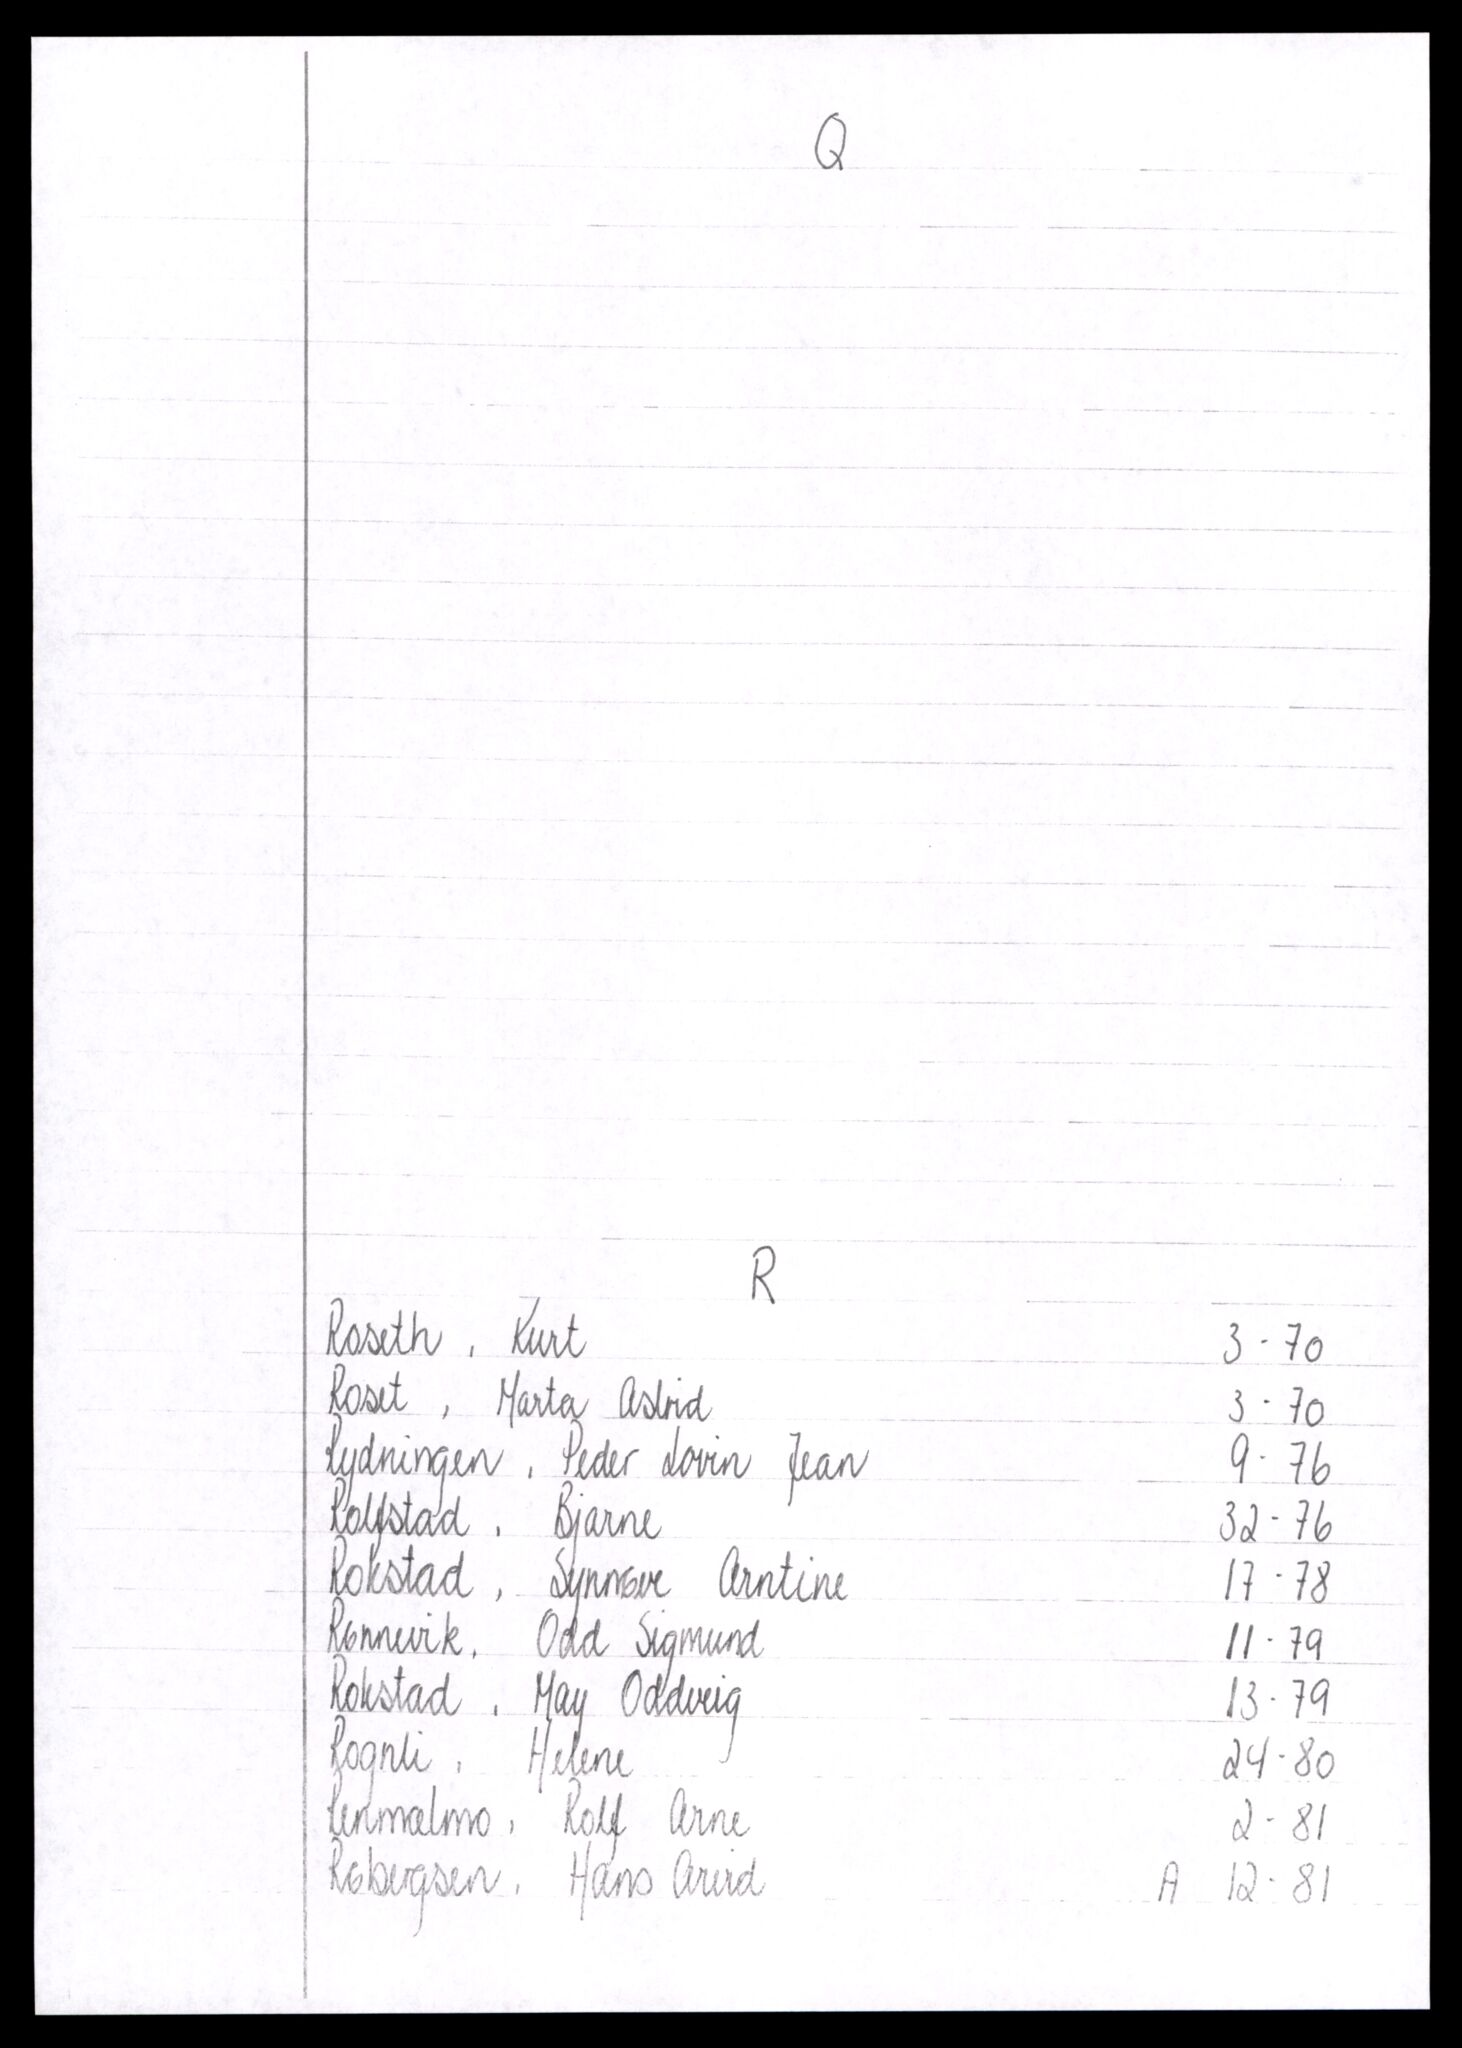 Q
R
Roseth, Kurt 3-70
Roset, Marta Astrid 3-70
Rydningen, Peder Lovin Jean 9-76
Rolfstad, Bjarne 32-76
Rokstad, Synnøve Arntine 17-78
Rønnevik, Odd Sigmund 11-79
Rokstad, May Oddveig 13-79
Rognli, Helene 24-80
Renmælmo, Rolf Arne 2-81
Røbergsen, Hans Arvid A 12-81